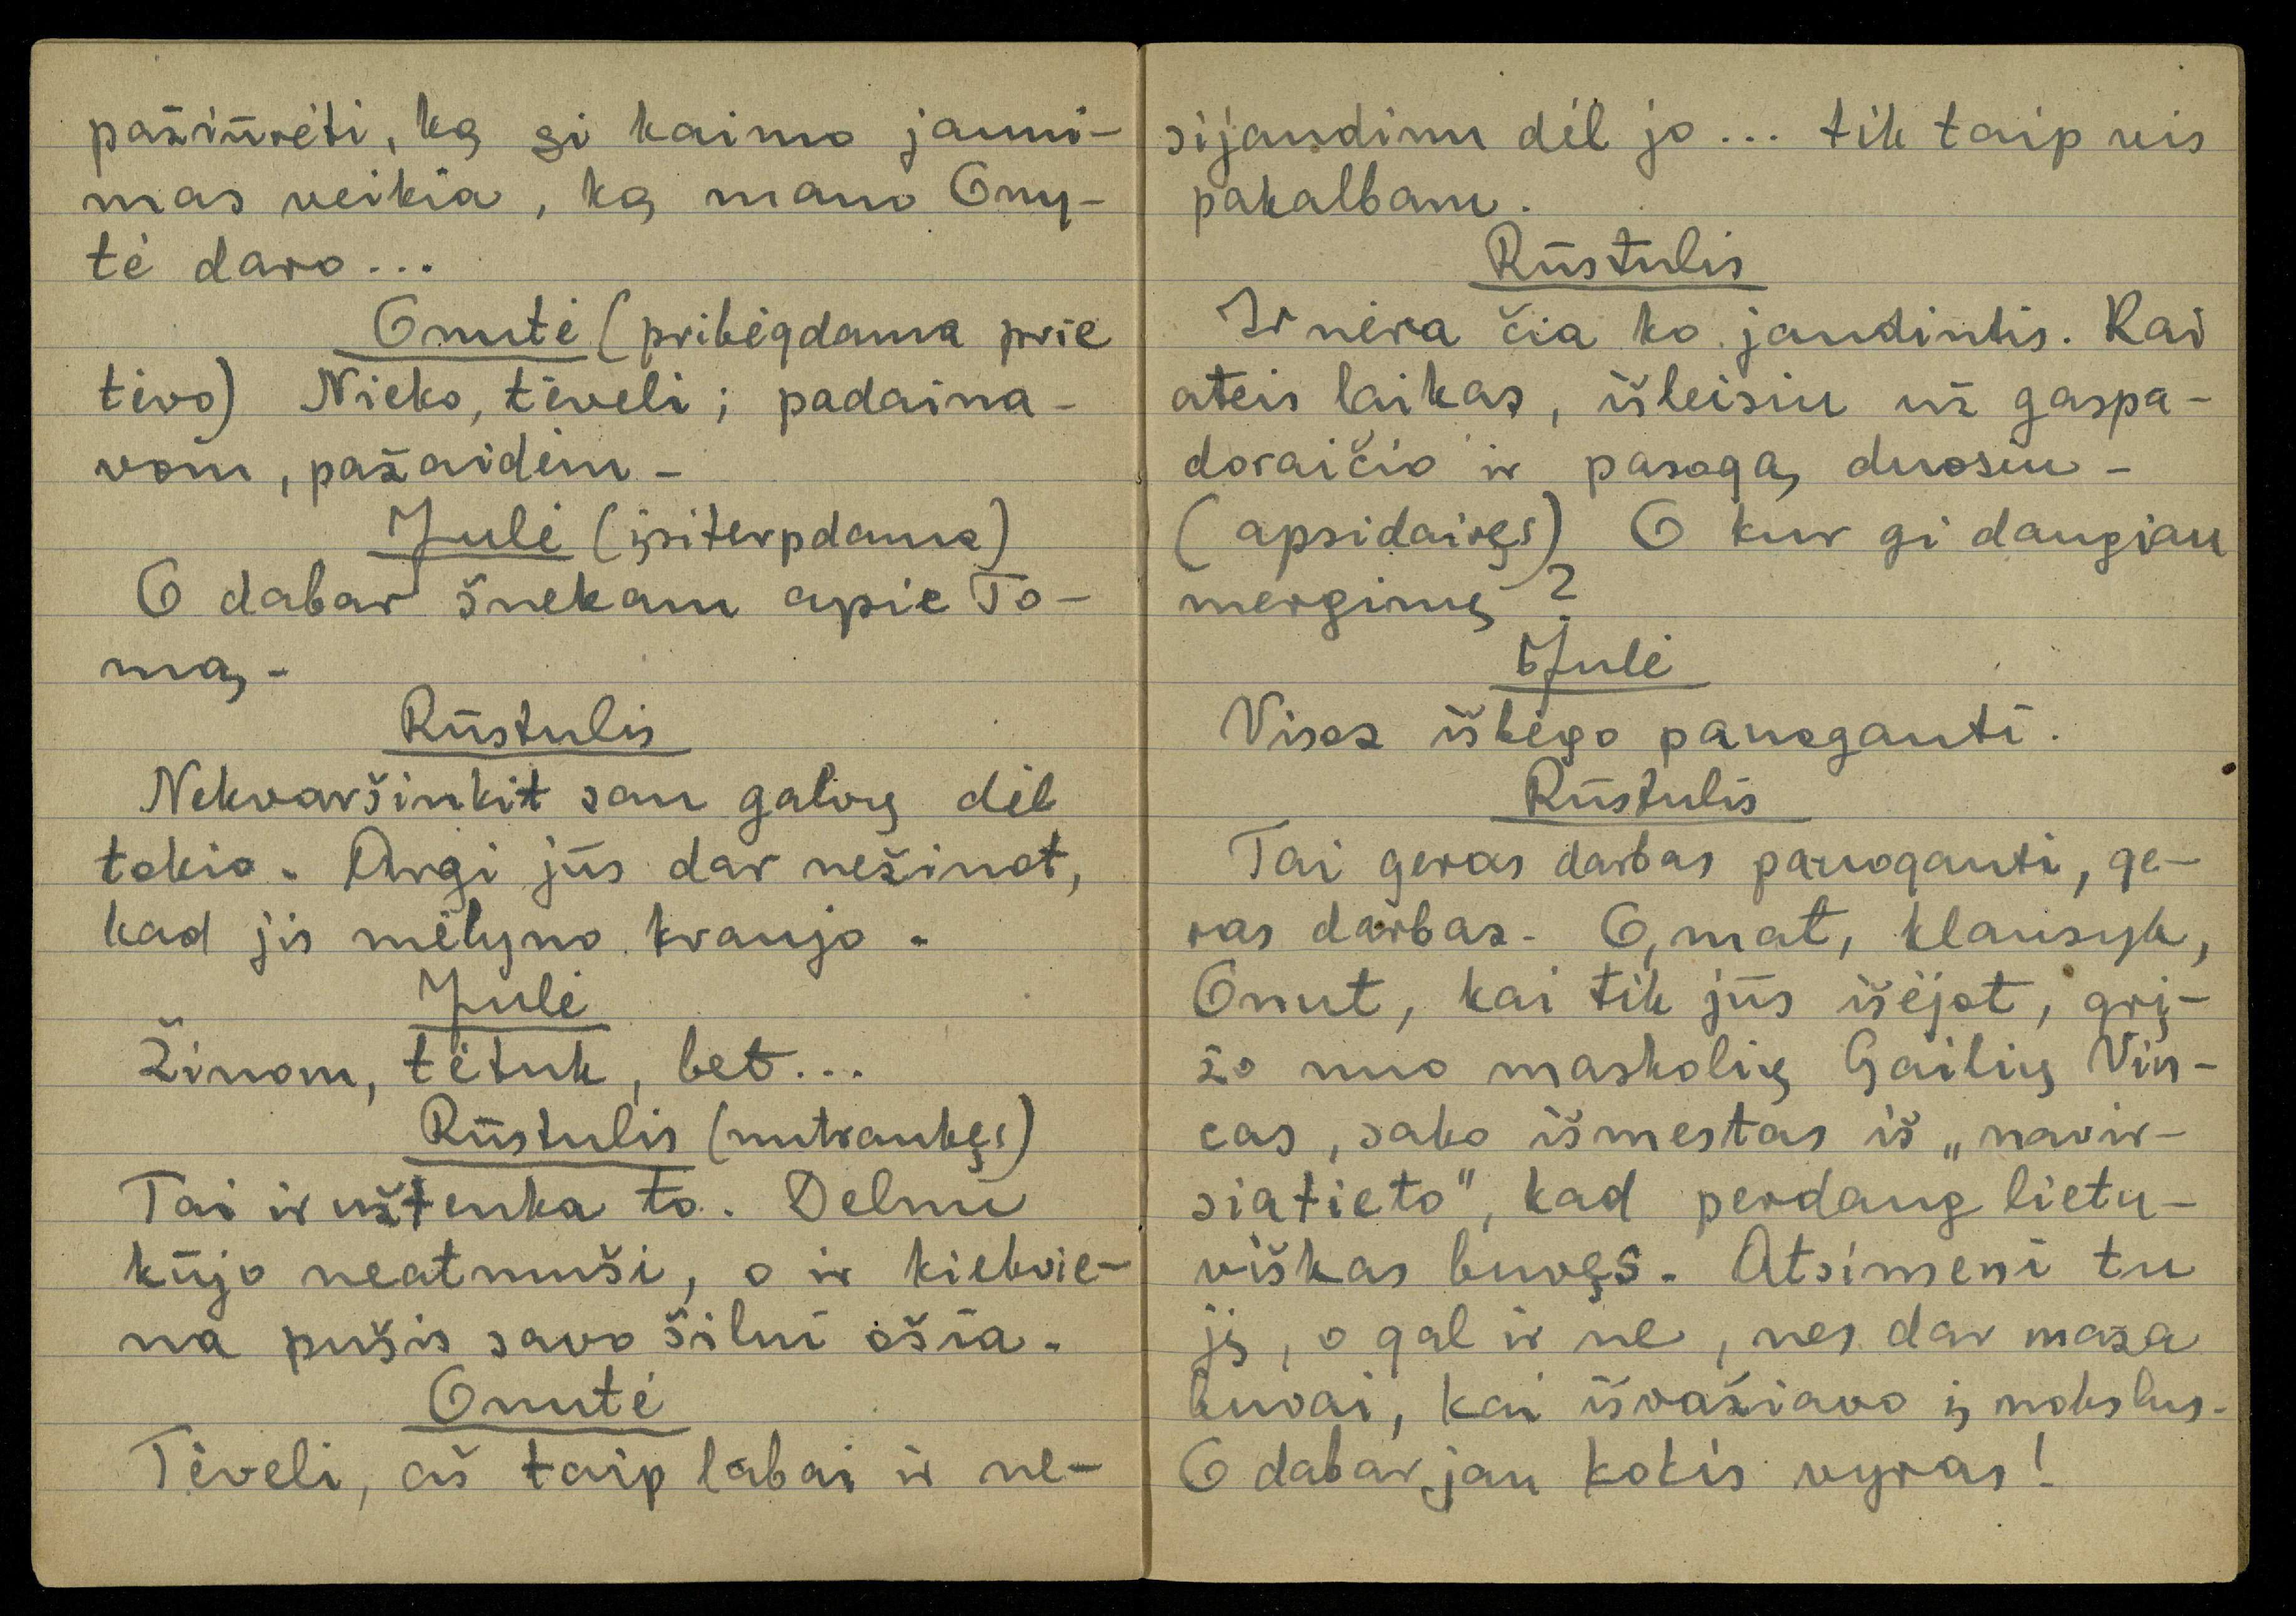 pažiūrėti, ką gi kaimo jauni-
mas veikia, ką mano Ony-
tė daro...
Onutė (pribėgdama prie
tėvo) Nieko, tėveli; padaina-
vom, pažaidėm -
Julė (įsiterpdama)
O dabar šnekam apie To-
mą -
Rūstulis
Nekvaršinkit sau galvų dėl
tokio. Argi jūs dar nežinot,
kad jis mėlyno kraujo.
Julė
Žinom, tėtuk, bet...
Rūstulis (nutraukęs)
Tai ir užtenka to. Delnu
kūjo neatmuši, o ir kiekvie-
na pušis savo šilui ošia.
Onutė
Tėveli, aš taip labai ir ne-
sijaudinu dėl jo... tik taip vis
pakalbam.
Rūstulis
Ir nėra čia ko jaudintis. Kai
ateis laikas, išleisiu už gaspa-
doraičio ir pasogą duosiu -
(apsidairęs) O kur gi daugiau
merginų?
Julė
Visos išbėgo panuogauti.
Rūstulis
Tai geras darbas panuogauti, ge-
ras darbas. O, mat, klausyk,
Onut, kai tik jūs išėjot, grį-
žo nuo maskolių Gailių Vin-
cas, sako išmestas iš „navir-
siatieto", kad perdaug lietu-
viškas buvęs. Atsimeni tu
jį, o gal ir ne, nes dar maža
buvai, kai išvažiavo į mokslus.
O dabar jau kokis vyras!